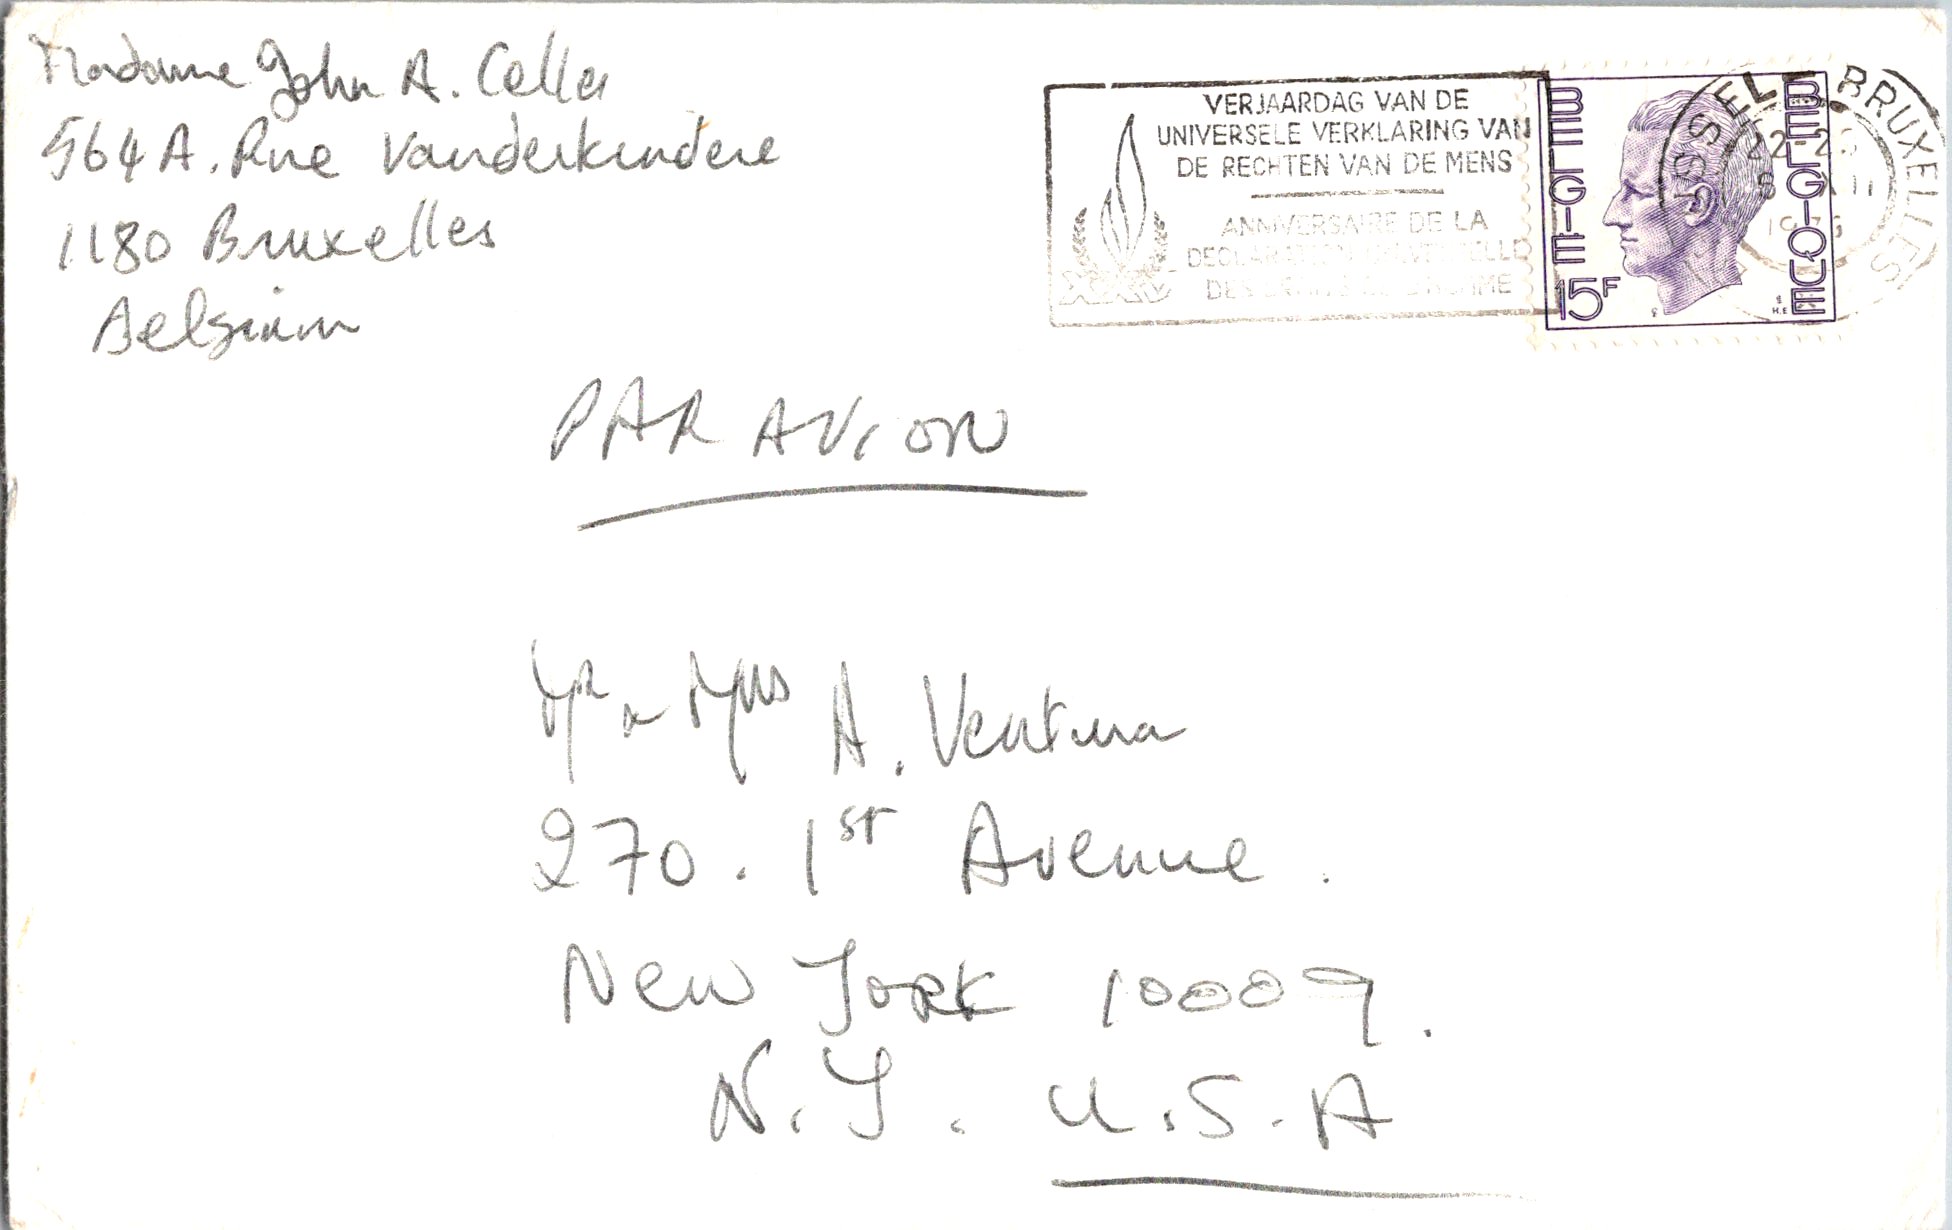 Madame John A. Celler
564 A. Rue Vanderkindere
1180 Bruxelles
Belgium
VERJAARDAG VAN DE
UNIVERSELE VERKLARING VAN
DE RECHTEN VAN DE MENS
ANNIVERSAIRE DE LA
DECLARATION UNIVERSELLE
DES DROITS DE L'HOMME
XXXV
BELGIE
15F
BELGIQUE
BRUSSEL BRUXELLES
PAR AVION
Mr & Mrs A. Ventura
270. 1st Avenue.
New York 10009.
N.Y. U.S.A